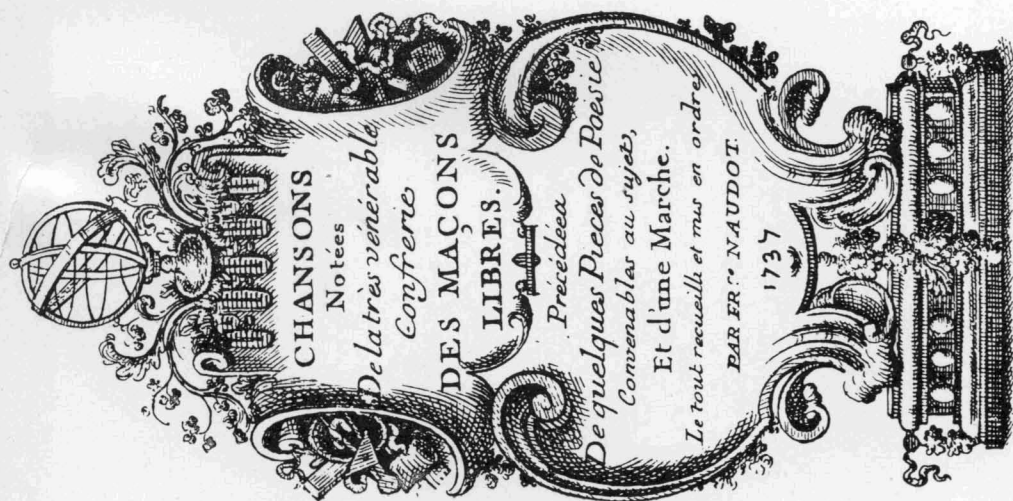 CHANSONS
Notées
De la très vénérable
Confrerie
DES MAÇONS
LIBRES.
Précédéea
De quelques Pieces de Poësie
Convenables au sujet,
Et d'une Marche.
Le tout recueilli et mis en ordre
PAR FR:^e NAUDOT.
1737